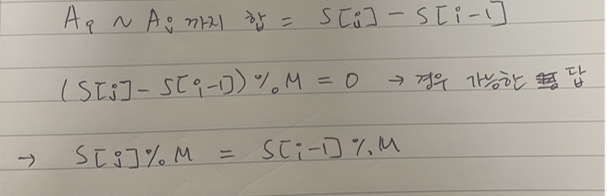 Ai ~ Aj 까지 합 = S[j] - S[i-1]
(S[j] - S[i-1]) % M = 0 → 경우 가능한 답
→ S[j] % M = S[i-1] % M